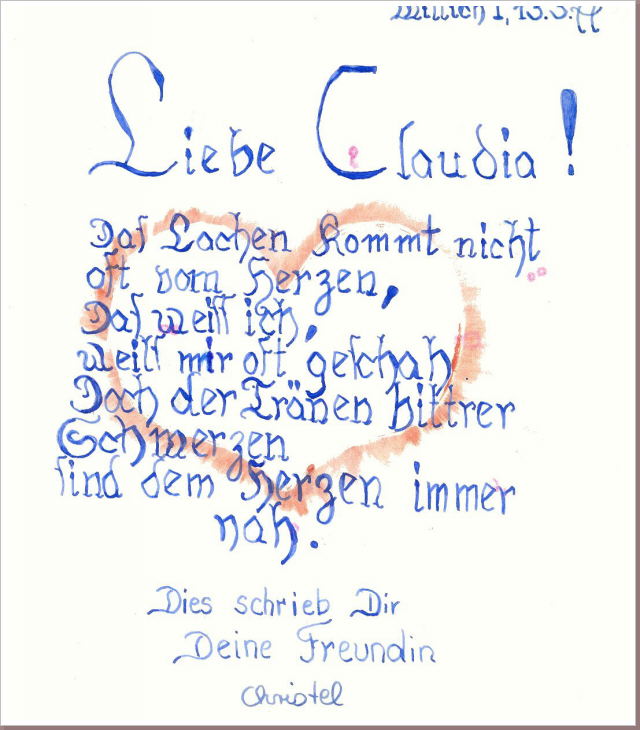 Liebe Claudia!
Das Lachen kommt nicht
oft vom Herzen,
Das weiss ich,
weils mir oft geschah
Doch der Tränen bittrer
Schmerzen
sind dem Herzen immer
nah.
Dies schrieb Dir
Deine Freundin
Christel